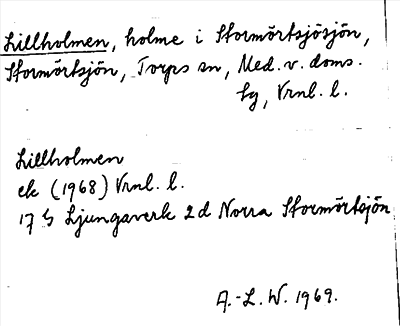 Lillholmen, holme i Stormörtsjösjön,
Stormörtsjön, Torps sn, Med. v. doms.
sg, Vrnl. l.
Lillholmen
ek (1968) Vrnl. l.
17 G Ljungaverk 2d Norra Stormörtsjön
A.-L. W. 1969.